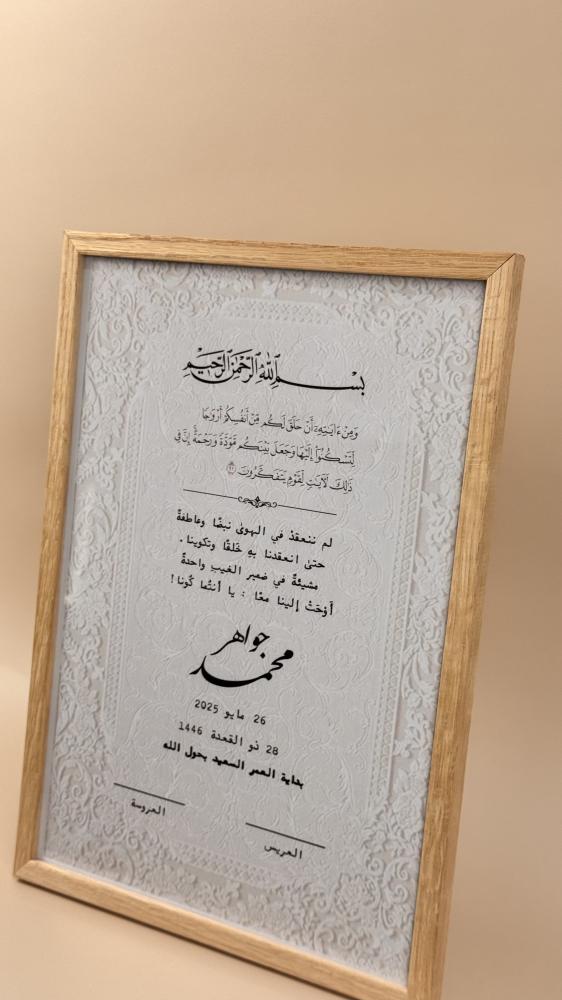 بسم الله الرحمن الرحيم
وَمِنْ ءَايَٰتِهِۦٓ أَنْ خَلَقَ لَكُم مِّنْ أَنفُسِكُمْ أَزْوَٰجًا
لِّتَسْكُنُوٓا۟ إِلَيْهَا وَجَعَلَ بَيْنَكُم مَّوَدَّةً وَرَحْمَةً إِنَّ فِى
ذَٰلِكَ لَءَايَٰتٍ لِّقَوْمٍ يَتَفَكَّرُونَ ٢١
لم ننعقدْ في الهوىٰ نبضًا وعاطفةً
حتىٰ انعقدنا بهِ خَلقًا وتكوينا .
مشيئةٌ في ضمير الغيبِ واحدةٌ
أَوْحَتْ إلينا معًا : يا أنتُما كُونا !
جواهر
محمد
26 مايو 2025
28 ذو القعدة 1446
بداية العمر السعيد بحول الله
العروسة
العريس